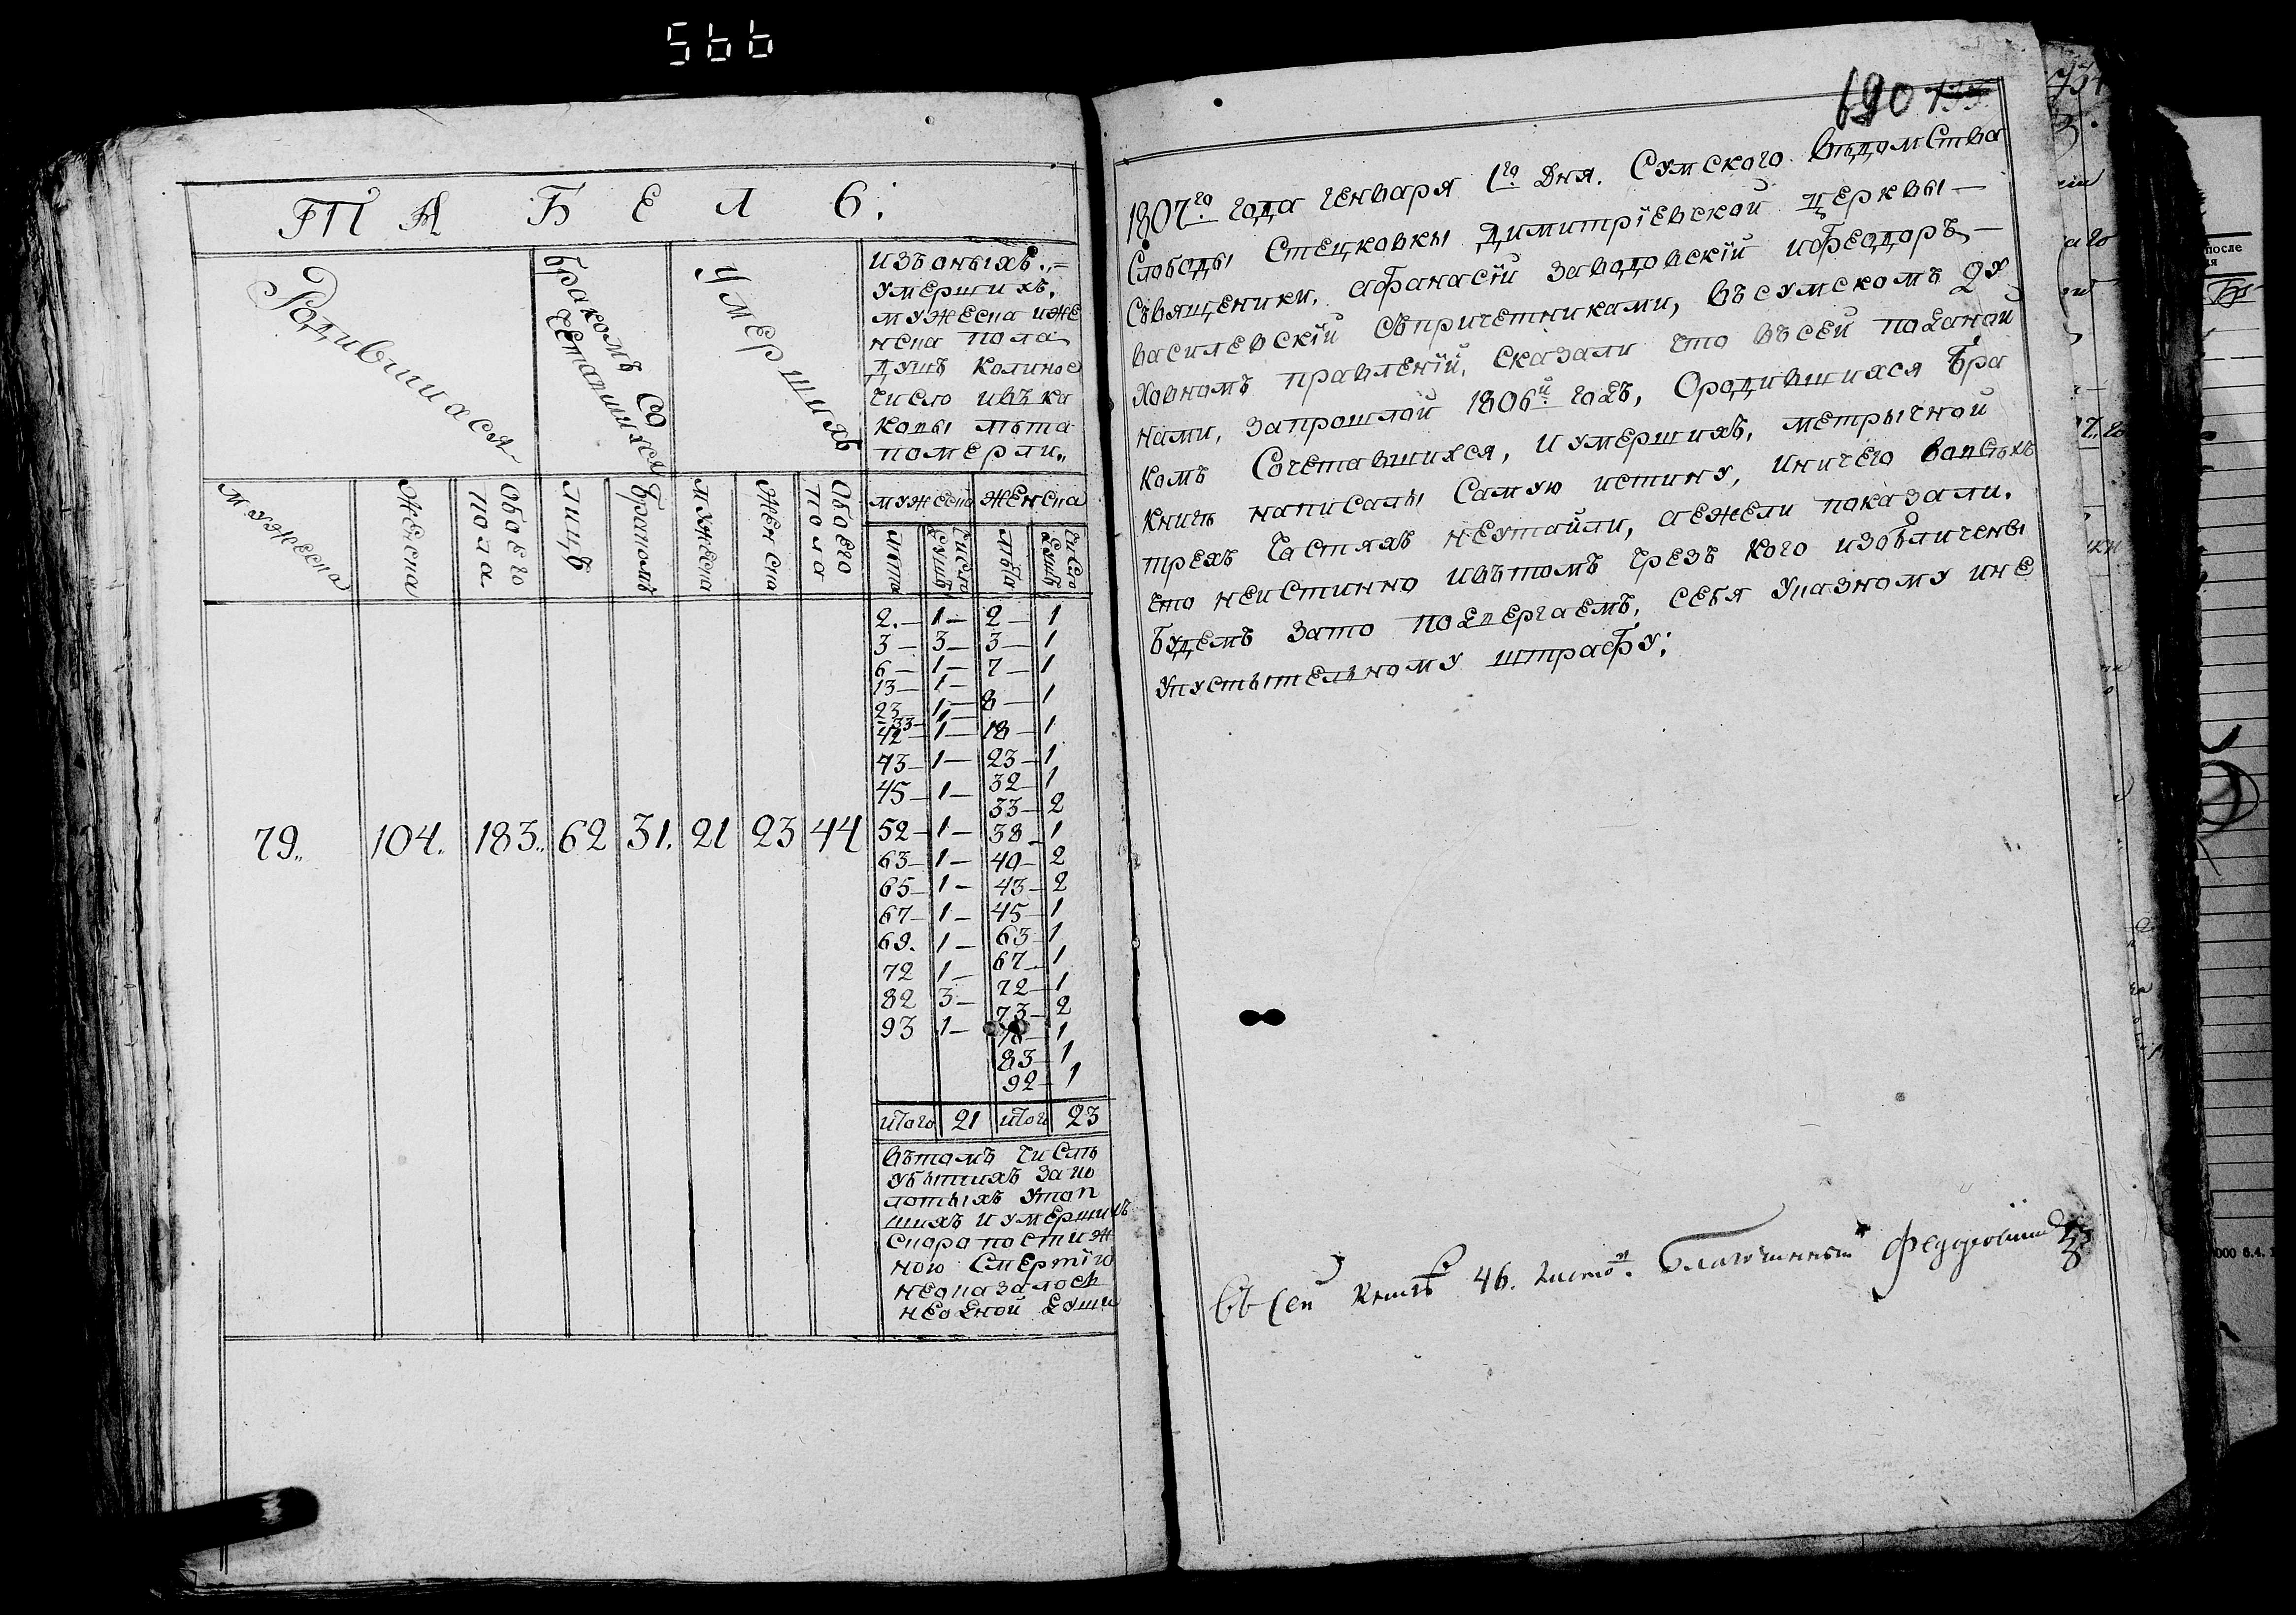 566
ТАБЕЛЬ:
Родившиася
бракомъ со
четавшихся
Умершихъ
изъ оныхъ
умершихъ,
мужеска и же
нска пола
душъ коликое
число и въ ка
ковы лѣта
померли„
мужеска
женска
обоего
пола
лицъ
браковъ
мужеска
женска
обоего
пола
мужеска женска
лѣта число душъ лѣта число душъ
2.— 1— 2— 1
3— 3— 3— 1
6— 1— 7— 1
13— 1—
23— 1— 8— 1
33— 1—
42— 1— 18— 1
43— 1— 23— 1
45— 1— 32— 1
33— 2
52— 1— 38— 1
63— 1— 40— 2
65— 1— 43— 2
67— 1— 45— 1
69. 1— 63— 1
72 1— 67— 1
82 3— 72— 1
93 1— 73— 2
78— 1
83— 1
92— 1
79„ 104. 183„ 62 31. 21 23 44
Итого 21 Итого 23
Въ томъ числѣ
убытихъ зако
лотыхъ утоп
шихъ и умершихъ
скоропостиж
ною смертію
неоказалось
неодной души
190 133
1807го года генваря 1го дня. Сумского вѣдомства
слободы Стецковки Димитріевской церквы—
священики, афанасій Заводовскій и феодоръ—
василевскій съ причетниками, въ сумскомъ ду
ховномъ правленій, сказали что въ сей поданой
нами, запрошлой 1806й годъ, о родившихся бра
комъ сочетавшихся, и умершихъ, метрычной
книгѣ написалы самую истину, иничего вовсѣхъ
трехъ частяхъ неутаили, а ежели показали.
что неистинно и въ томъ чрезъ кого изобличены
будемъ зато подвергаемъ, себя указному ине
упустытельному штрафу;
Въ сей книгѣ 46. листовъ. Благочинный